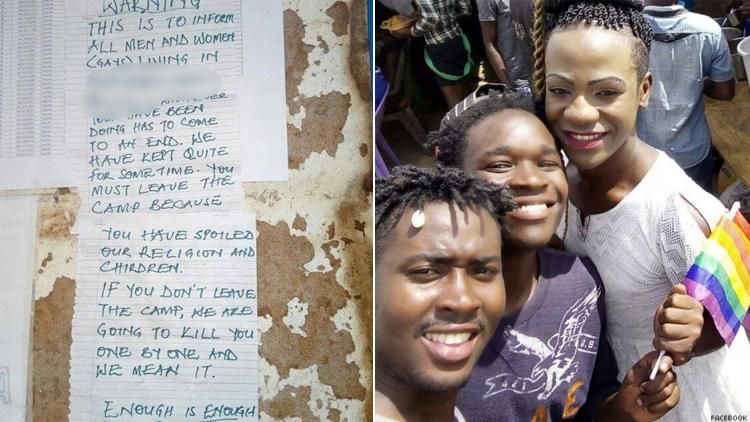 WARNING
THIS IS TO INFORM
ALL MEN AND WOMEN
(GAY) LIVING IN
HAVE BEEN
DOING HAS TO COME
TO AN END. WE
HAVE KEPT QUITE
FOR SOMETIME. YOU
MUST LEAVE THE
CAMP BECAUSE
YOU HAVE SPOILED
OUR RELIGION AND
CHIRDREN.
IF YOU DON'T LEAVE
THE CAMP, WE ARE
GOING TO KILL YOU
ONE BY ONE AND
WE MEAN IT.
ENOUGH IS ENOUGH
FACEBOOK